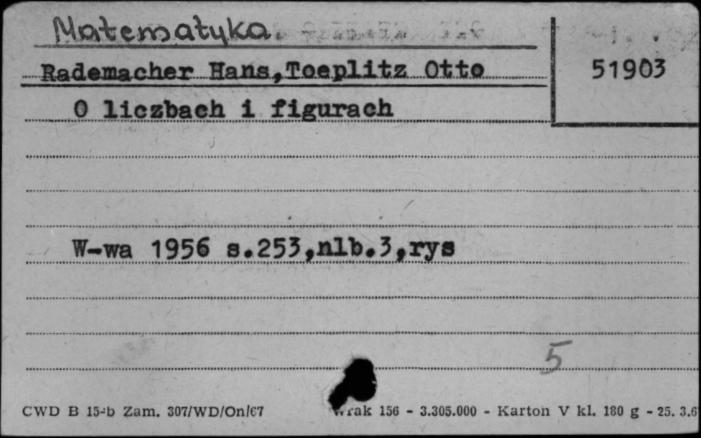 Matematyka
Rademacher Hans,Toeplitz Otto
51903
O liczbach i figurach
W-wa 1956 s.253,nlb.3,rys
5
CWD B 15-b Zam. 307/WD/On/67 Wrak 156 - 3.305.000 - Karton V kl. 180 g - 25. 3.6